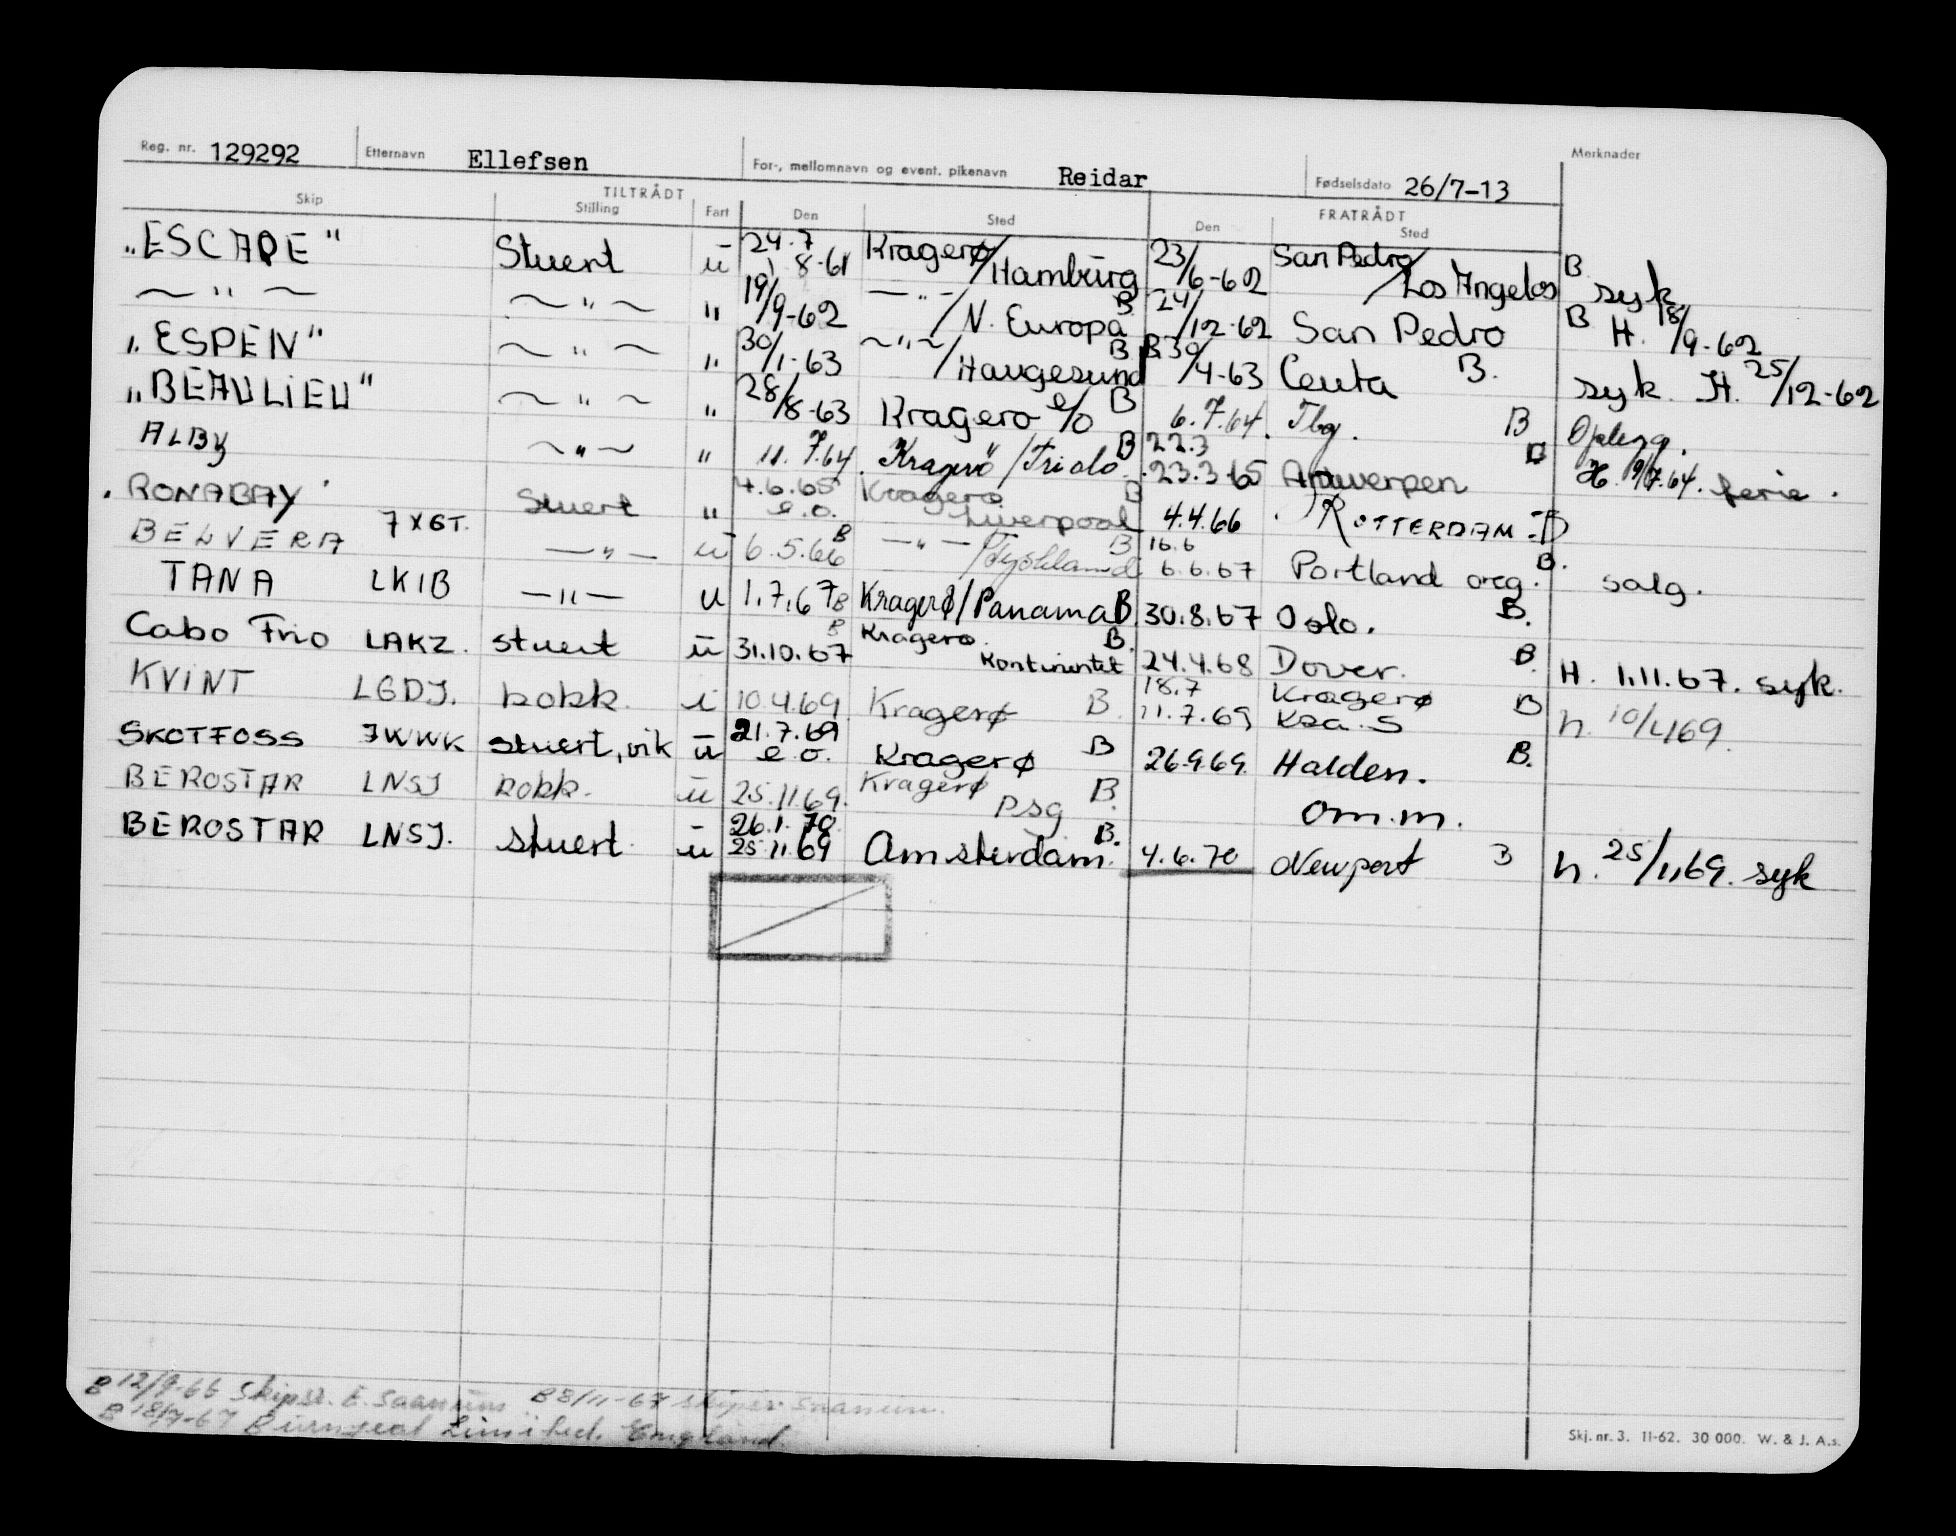 Reg. nr. 129292 Etternavn Ellefsen For-, mellomnavn og event. pikenavn Reidar Fødselsdato 26/7-13 Merknader
TILTRÅDT FRATRÅDT
Skip Stilling Fart Den Sted Den Sted
„ESCAPE" Stuert ū 24.7 1.8-61 Kragerø/Hamburg 23/6-62 San Pedro/Los Angelos B syk
~ " ~ ~ " ~ " 19/9-62 — " —/N. Europa B. 24/12-62 San Pedro B H. 18/9-62
„ESPEN" ~ " ~ " 30/1-63 ~ " ~/Haugesund B B 30/4-63 Ceuta B. syk. H. 25/12-62
„BEAULIEU" ~ " ~ " 28/8-63 Kragerø e/o B 6.7.64. Tbg. B Oplegg.
ALBY ~ " ~ " 11.7.64. Kragerö/Trido B 22.3 23.3-65 Antwerpen B H. 9/7.64. ferie.
"RONABAY" Stuert " 4.6.65 e.o. Kragerø Liverpool B 4.4.66 ROTTERDAM B
BELVERA 7XGT. — " — ū 6.5.66 B — " —/Tyskland B 16.6 6.6.67 Portland oreg. B. salg.
TANA LKIB — " — u 1.7.67 B Kragerø/Panama B 30.8.67 Oslo. B.
Cabo Frio LAKZ. stuert ū 31.10.67 B Kragerø. Kontinentet B. 24.4.68 Dover. B. H. 1.11.67. syk.
KVINT LGDJ. kokk. i 10.4.69 Kragerø B. 18.7 11.7.69 Kragerø Kra. S B h. 10/469.
SKOTFOSS JWWK stuert, vik ū 21.7.69 e.o. Kragerø B 26.9.69. Halden. B.
BEROSTAR LNSJ kokk. ū 25.11.69. Kragerø psg B. om.m.
BEROSTAR LNSJ. stuert ū 26.1.70 25.11.69 Amsterdam. B. 4.6.70 Newport B h. 25/1169. syk
B 12/9-66 Skipsr. E. Saanum B 8/11-67 skipsr. Saanum.
B 18/7-67 Limited. England.
Skj. nr. 3. 11-62. 30 000. W. & J. A.s.